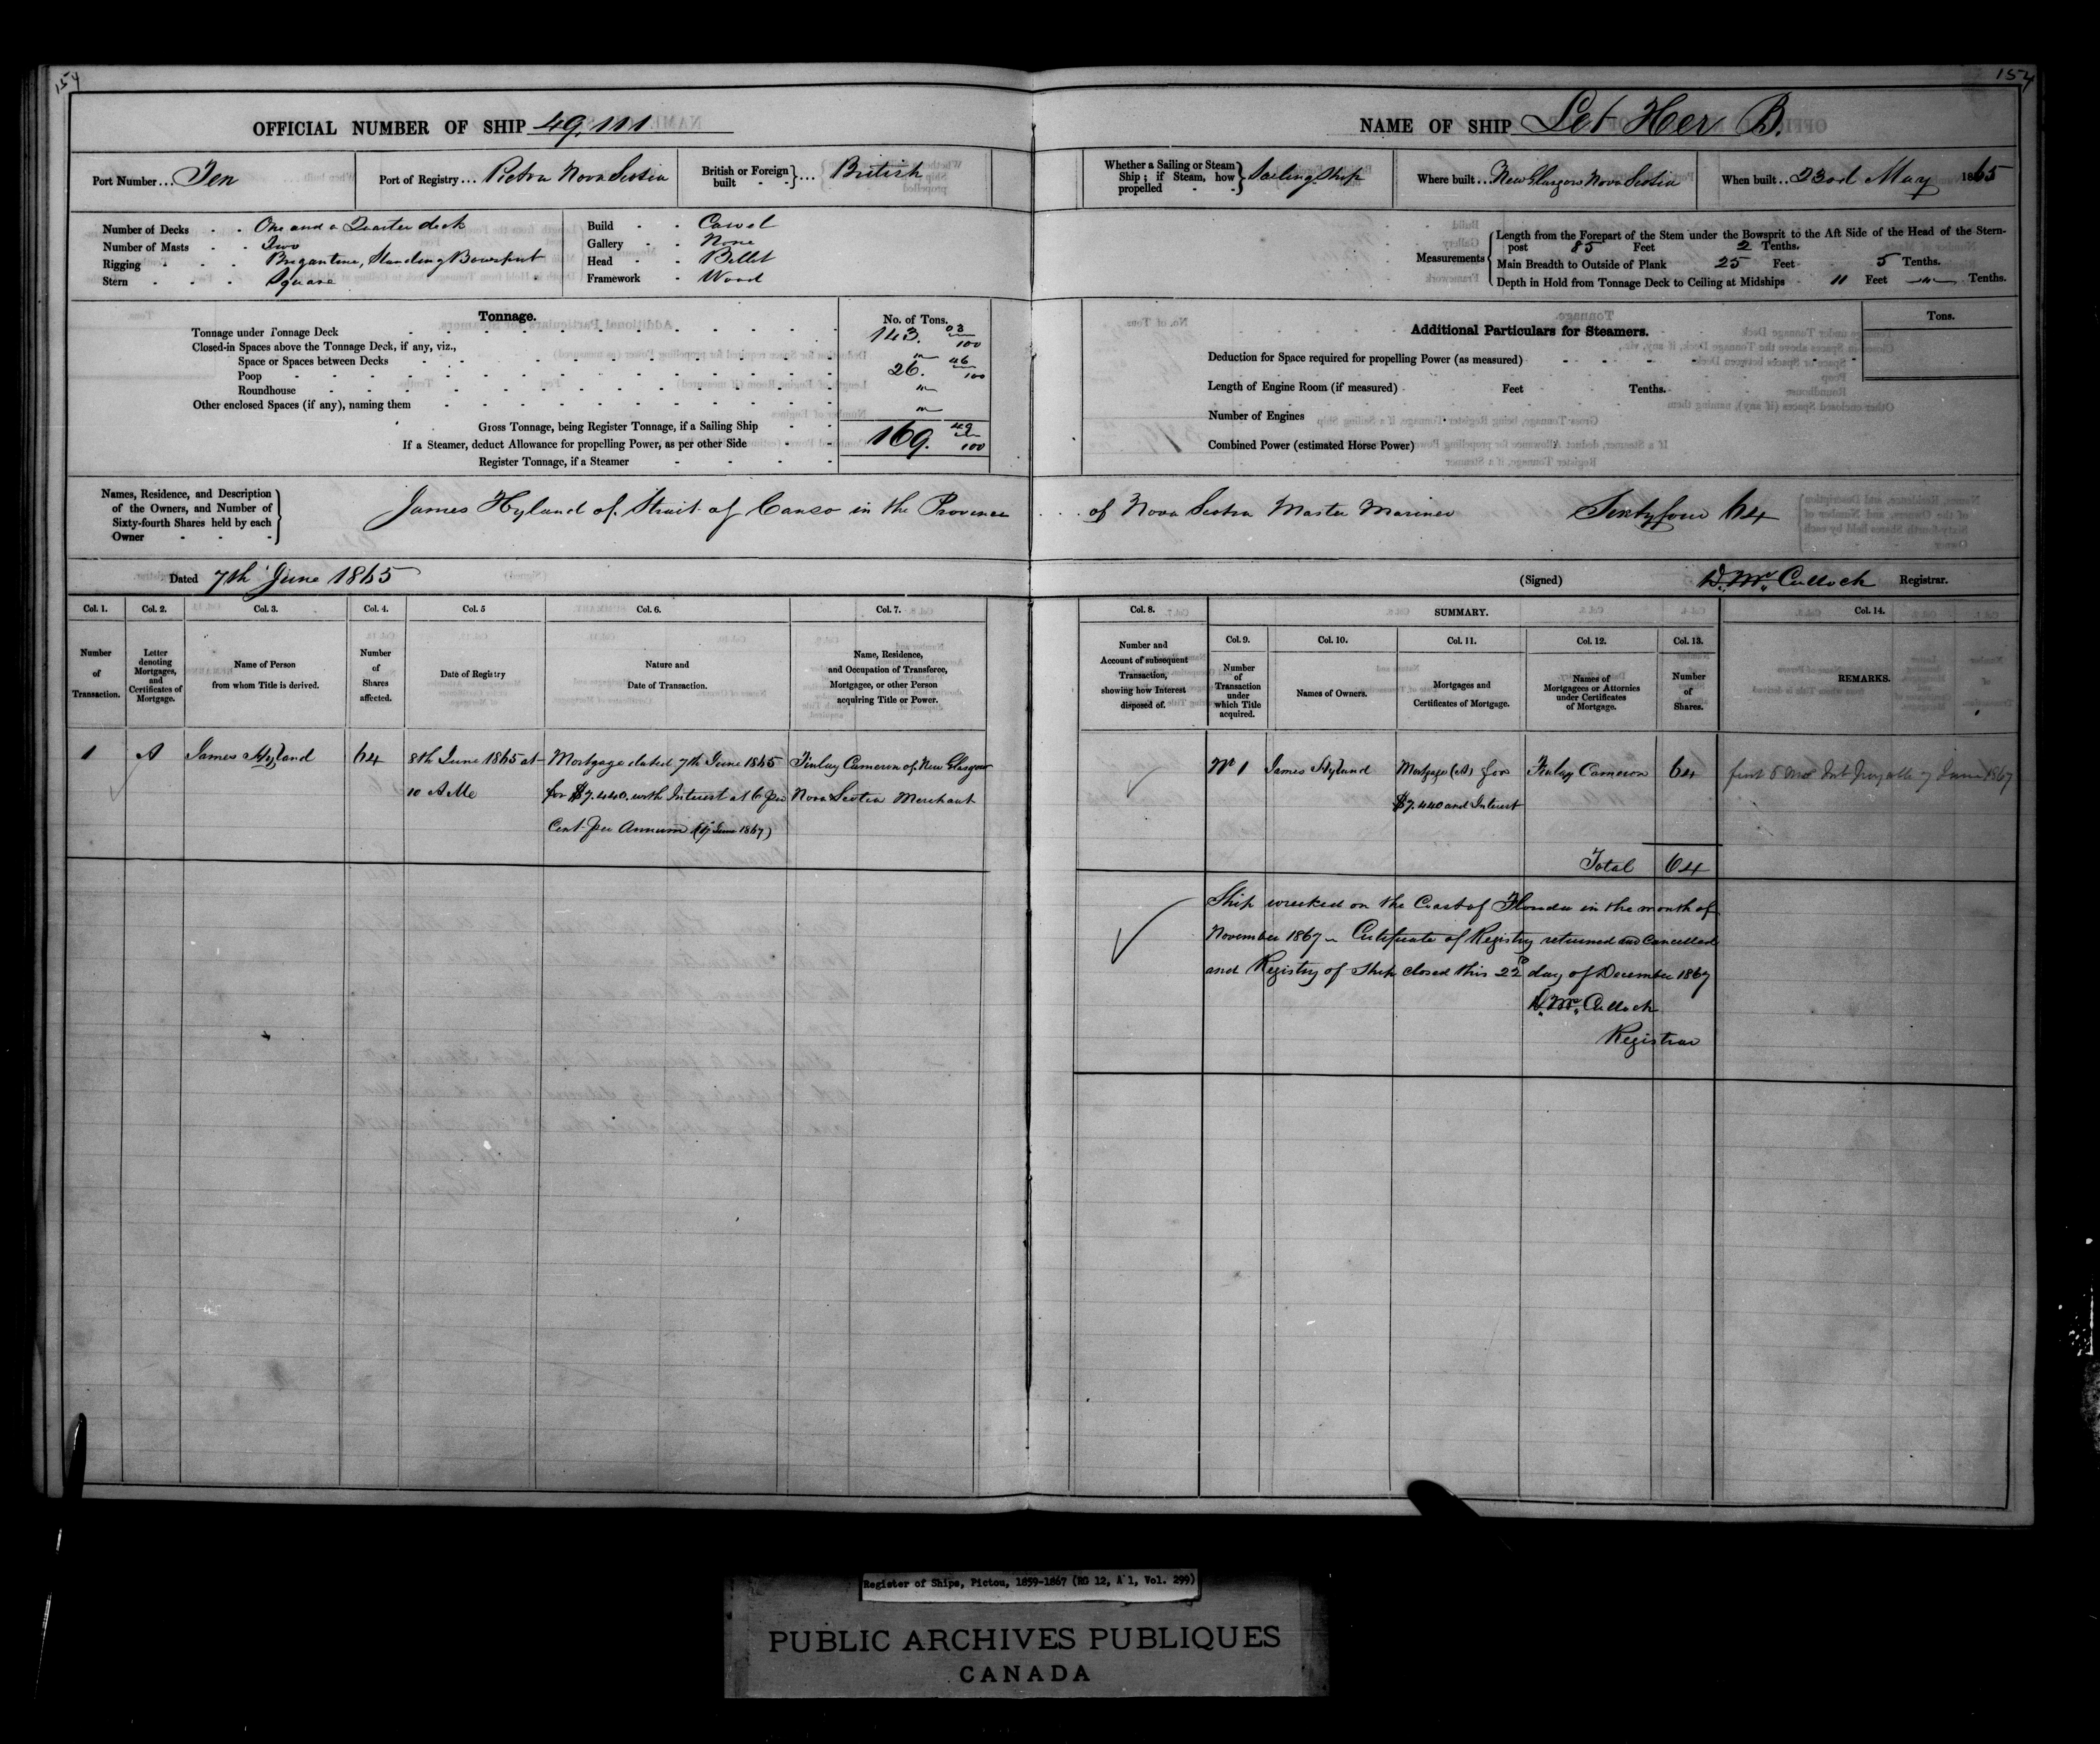 157
157
OFFICIAL NUMBER OF SHIP 49,111
NAME OF SHIP Let Her B.
Port Number... Ten
Port of Registry... Pictou Nova Scotia
British or Foreign built - - }... British
Whether a Sailing or Steam Ship; if Steam, how propelled - - } Sailing Ship
Where built... New Glasgow Nova Scotia
When built... 23rd May 1865
Number of Decks - - One and a Quarter deck
Number of Masts - - Two
Rigging - - - Brigantine, Standing Bowsprit
Stern - - - Square
Build - - Carvel
Gallery - - None
Head - - Billet
Framework - Wood
Measurements
Length from the Forepart of the Stem under the Bowsprit to the Aft Side of the Head of the Stern-
post 85 Feet 2 Tenths.
Main Breadth to Outside of Plank 25 Feet 5 Tenths.
Depth in Hold from Tonnage Deck to Ceiling at Midships 11 Feet — " — Tenths.
Tonnage.
No. of Tons.
Tonnage under Tonnage Deck 143. 03/100
Closed-in Spaces above the Tonnage Deck, if any, viz.,
Space or Spaces between Decks "
Poop 26. 46/100
Roundhouse "
Other enclosed Spaces (if any), naming them "
Gross Tonnage, being Register Tonnage, if a Sailing Ship 169. 49/100
If a Steamer, deduct Allowance for propelling Power, as per other Side
Register Tonnage, if a Steamer
Additional Particulars for Steamers.
Tons.
Deduction for Space required for propelling Power (as measured)
Length of Engine Room (if measured) Feet Tenths.
Number of Engines
Combined Power (estimated Horse Power)
Names, Residence, and Description
of the Owners, and Number of
Sixty-fourth Shares held by each
Owner
James Hyland of Strait of Canso in the Province of Nova Scotia Master Mariner Sixtyfour 64
Dated 7th June 1865
(Signed) D. McCulloch Registrar.
Col. 1. Col. 2. Col. 3. Col. 4. Col. 5 Col. 6. Col. 7.
Number of Transaction.
Letter denoting Mortgages, and Certificates of Mortgage.
Name of Person from whom Title is derived.
Number of Shares affected.
Date of Registry
Nature and Date of Transaction.
Name, Residence, and Occupation of Transferee, Mortgagee, or other Person acquiring Title or Power.
Col. 8. SUMMARY. Col. 14.
Col. 9. Col. 10. Col. 11. Col. 12. Col. 13.
Number and Account of subsequent Transaction, showing how Interest disposed of.
Number of Transaction under which Title acquired.
Names of Owners.
Mortgages and Certificates of Mortgage.
Names of Mortgagees or Attornies under Certificates of Mortgage.
Number of Shares.
REMARKS.
1 A James Hyland 64 8th June 1865 at Mortgage dated 7th June 1865 Finlay Cameron of New Glasgow
10 A M for $7.440. with Interest at 6 per Nova Scotia Merchant
Cent per Annum (7 June 1867)
No 1 James Hyland Mortgage (A) for Finlay Cameron 64 first 6 Mos Int payable 7 June 1867
$7.440 and Interest
Total 64
Ship wrecked on the Coast of Florida in the month of
November 1867 - Certificate of Registry returned and Cancelled
and Registry of Ship closed this 22d day of December 1867
D. McCulloch
Registrar
Register of Ships, Pictou, 1859-1867 (RG 12, A 1, Vol. 299)
PUBLIC ARCHIVES PUBLIQUES
CANADA